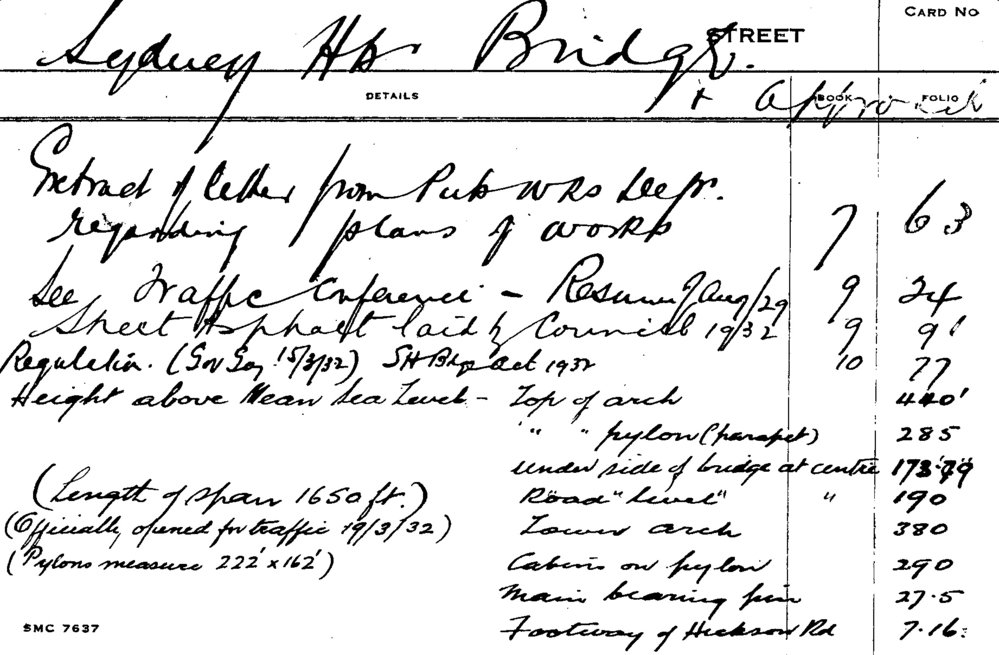 CARD NO
Sydney Hbr Bridge. STREET
DETAILS + Approach BOOK FOLIO
Extract of letter from Pub Wks Dept.
regarding plans of works 7 63
See Traffic Conference - Resume of Aug/29 9 24
Sheet Asphalt laid by Council 1932 9 91
Regulation. (Gov Gaz 15/3/32) SH Bdge Act 1932 10 77
Height above Mean Sea Level - Top of arch 440'
" " pylon (parapet) 285
under side of bridge at centre
(Length of span 1650 ft.) Road "Level" " 190
(Officially opened for traffic 19/3/32) Lower arch 380
(Pylons measure 222' x 162') Cabins on pylon 290
Main bearing pin 27.5
SMC 7637 Footway of Hickson Rd 7.16